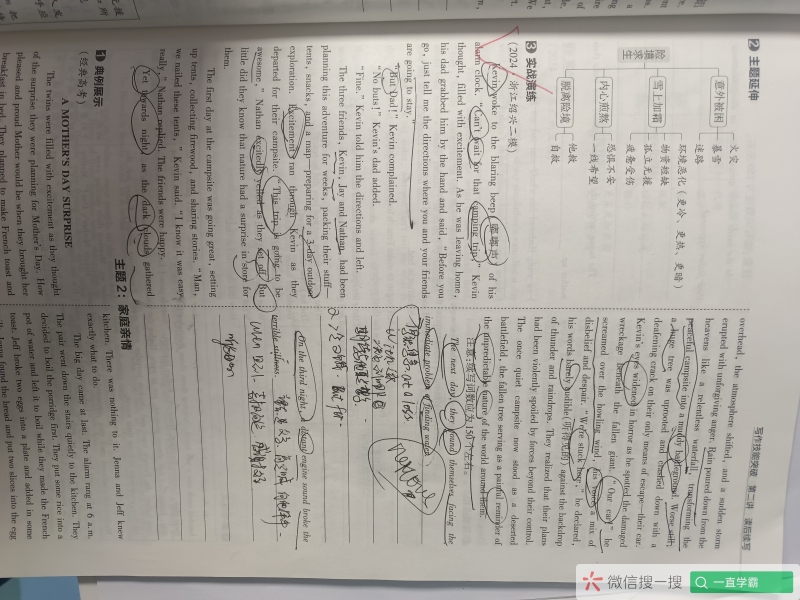 写作技能突破 第二讲 读后续写
2 主题延伸
险境求生
意外被困
火灾
暴雪
迷路
雪上加霜
环境恶化(更冷、更热、更暗)
物资短缺
孤立无援
疲惫受伤
内心煎熬
恐惧不安
一线希望
脱离险境
他救
自救
3 实战演练
(2024·浙江绍兴二模)
Kevin woke to the blaring beep(嘟嘟声)of his
alarm clock. "Can't wait for that camping trip," Kevin
thought, filled with excitement. As he was leaving home,
his dad grabbed him by the hand and said, "Before you
go, just tell me the directions where you and your friends
are going to stay."
"But Dad!" Kevin complained.
"No buts!" Kevin's dad added.
"Fine," Kevin told him the directions and left.
The three friends, Kevin, Jay and Nathan, had been
planning this adventure for weeks, packing their stuff—
tents, snacks, and a map—preparing for a 3-day outdoor
exploration. Excitement ran through Kevin as they
departed for their campsite. "This trip is going to be
awesome," Nathan excitedly yelled as they set off. But
little did they know that nature had a surprise in store for
them.
The first day at the campsite was going great, setting
up tents, collecting firewood, and sharing stories. "Man,
we nailed these tents," Kevin said. "I know it was easy,
really," Nathan replied. The friends were happy.
Yet towards night, as the dark clouds gathered
overhead, the atmosphere shifted, and a sudden storm
erupted with unforgiving anger. Rain poured down from the
heavens like a relentless waterfall, transforming the
peaceful campsite into a muddy battleground. Worse still,
a huge tree was uprooted and crashed down with a
deafening crack on their only means of escape—their car.
Kevin's eyes widened in horror as he spotted the damaged
wreckage beneath the fallen giant. "Our car!" he
screamed over the howling wind, his voice a mix of
disbelief and despair. "We're stuck here," he declared,
his words barely audible(听得见的)against the backdrop
of thunder and raindrops. They realized that their plans
had been violently spoiled by forces beyond their control.
The once quiet campsite now stood as a deserted
battlefield, the fallen tree serving as a painful reminder of
the unpredictable nature of the world around them.
注意:续写词数应为150个左右。
The next day, they found themselves facing the
immediate problem of finding water.
at a loss
On the third night, a distant engine sound broke the
terrible stillness.
1 典例展示
(经典高考)
A MOTHER'S DAY SURPRISE
The twins were filled with excitement as they thought
of the surprise they were planning for Mother's Day. How
pleased and proud Mother would be when they brought her
breakfast in bed. They planned to make French toast and
主题2:家庭亲情
kitchen. There was nothing to it. Jenna and Jeff knew
exactly what to do.
The big day came at last. The alarm rang at 6 a.m.
The pair went down the stairs quietly to the kitchen. They
decided to boil the porridge first. They put some rice into a
pot of water and left it to boil while they made the French
toast. Jeff broke two eggs into a plate and added in some
found the bread and put two slices into the egg
微信搜一搜
一直学霸